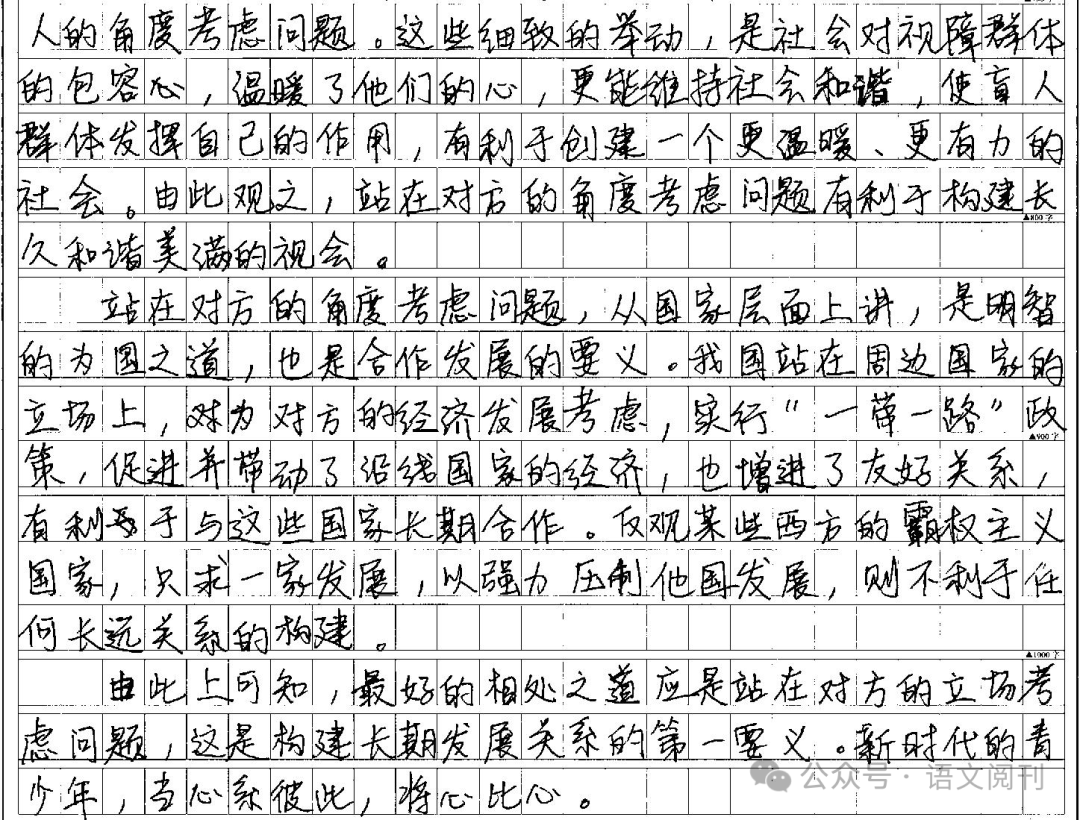 人的角度考虑问题。这些细致的举动，是社会对视障群体
的包容心，温暖了他们的心，更能维持社会和谐，使盲人
群体发挥自己的作用，有利于创建一个更温暖、更有力的
社会。由此观之，站在对方的角度考虑问题有利于构建长
▲800字
久和谐美满的视会。
站在对方的角度考虑问题，从国家层面上讲，是明智
的为国之道，也是合作发展的要义。我国站在周边国家的
立场上，对为对方的经济发展考虑，实行“一带一路”政
▲900字
策，促进并带动了沿线国家的经济，也增进了友好关系，
有利于与这些国家长期合作。反观某些西方的霸权主义
国家，只求一家发展，以强力压制他国发展，则不利于任
何长远关系的构建。
▲1000字
由此上可知，最好的相处之道应是站在对方的立场考
虑问题，这是构建长期发展关系的第一要义。新时代的青
少年，当心系彼此，将心比心。
公众号·语文阅刊